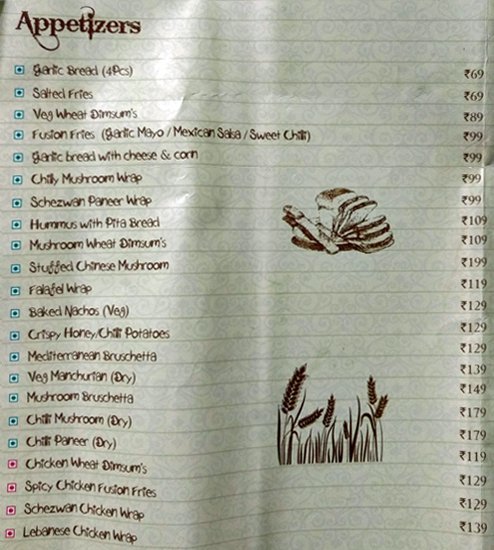 Appetizers
Garlic Bread (4Pcs) ₹69
Salted Fries ₹69
Veg Wheat Dimsum's ₹89
Fusion Fries (Garlic Mayo / Mexican Salsa / Sweet Chilli) ₹99
Garlic bread with cheese & corn ₹99
Chilly Mushroom Wrap ₹99
Schezwan Paneer Wrap ₹99
Hummus with Pita Bread ₹109
Mushroom Wheat Dimsum's ₹109
Stuffed Chinese Mushroom ₹199
Falafel Wrap ₹119
Baked Nachos (Veg) ₹129
Crispy Honey/Chilli Potatoes ₹129
Mediterranean Bruschetta ₹129
Veg Manchurian (Dry) ₹139
Mushroom Bruschetta ₹149
Chilli Mushroom (Dry) ₹179
Chilli Paneer (Dry) ₹179
Chicken Wheat Dimsum's ₹119
Spicy Chicken Fusion Fries ₹129
Schezwan Chicken Wrap ₹129
Lebanese Chicken Wrap ₹139